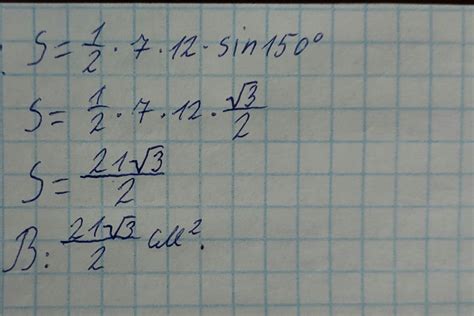 S = 1/2 · 7 · 12 · sin 150°
S = 1/2 · 7 · 12 · √3/2
S = 21√3/2
В: 21√3/2 см².